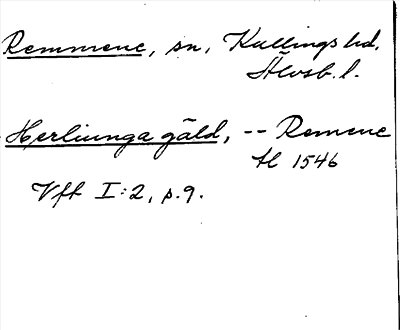 Remmene, sn, Kullings hd.
Älvsb. l.
Herliunga gäld, -- Remene
tl 1546
Vft I:2, p. 9.